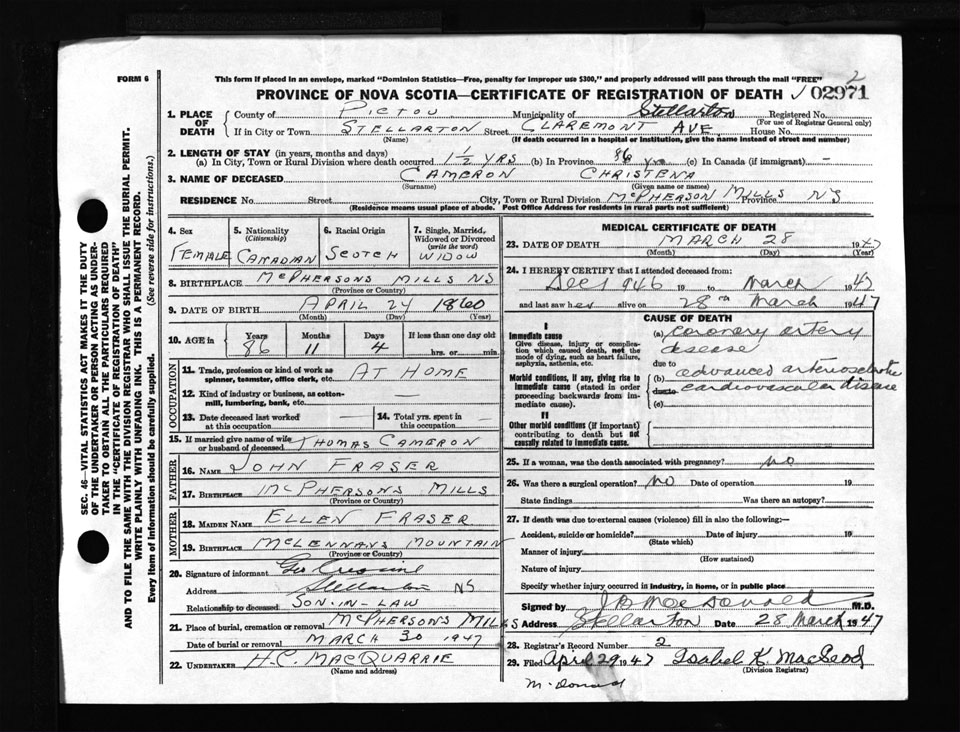 FORM 6
This form if placed in an envelope, marked "Dominion Statistics—Free, penalty for improper use $300," and properly addressed will pass through the mail "FREE"
2
PROVINCE OF NOVA SCOTIA—CERTIFICATE OF REGISTRATION OF DEATH 02971
SEC. 46—VITAL STATISTICS ACT MAKES IT THE DUTY
OF THE UNDERTAKER OR PERSON ACTING AS UNDER-
TAKER TO OBTAIN ALL THE PARTICULARS REQUIRED
IN THE "CERTIFICATE OF REGISTRATION OF DEATH"
AND TO FILE THE SAME WITH THE DIVISION REGISTRAR WHO SHALL ISSUE THE BURIAL PERMIT.
WRITE PLAINLY WITH UNFADING INK. THIS IS A PERMANENT RECORD.
Every item of information should be carefully supplied. (See reverse side for instructions.)
1. PLACE OF DEATH
County of PICTOU Municipality of Stellarton Registered No.
(For use of Registrar General only)
If in City or Town STELLARTON Street CLAREMONT AVE House No.
(Name) (If death occurred in a hospital or institution, give the name instead of street and number)
2. LENGTH OF STAY (in years, months and days)
(a) In City, Town or Rural Division where death occurred 1 1/2 YRS (b) In Province 86 yrs (c) In Canada (if immigrant) —
3. NAME OF DECEASED CAMERON CHRISTENA
(Surname) (Given name or names)
RESIDENCE No. Street City, Town or Rural Division McPHERSON MILLS Province NS
(Residence means usual place of abode. Post Office Address for residents in rural parts not sufficient)
4. Sex
FEMALE
5. Nationality
(Citizenship)
CANADIAN
6. Racial Origin
SCOTCH
7. Single, Married, Widowed or Divorced
(write the word)
WIDOW
8. BIRTHPLACE McPHERSONS MILLS NS
(Province or Country)
9. DATE OF BIRTH APRIL 24 1860
(Month) (Day) (Year)
10. AGE in Years Months Days If less than one day old
86 11 4 hrs. or min.
OCCUPATION
11. Trade, profession or kind of work as spinner, teamster, office clerk, etc. AT HOME
12. Kind of industry or business, as cotton-mill, lumbering, bank, etc. —
13. Date deceased last worked at this occupation —
14. Total yrs. spent in this occupation —
15. If married give name of wife or husband of deceased THOMAS CAMERON
FATHER
16. NAME JOHN FRASER
17. BIRTHPLACE McPHERSONS MILLS
(Province or Country)
MOTHER
18. MAIDEN NAME ELLEN FRASER
19. BIRTHPLACE McLENNANS MOUNTAIN
(Province or Country)
20. Signature of informant Geo
Address Stellarton NS
Relationship to deceased SON-IN-LAW
21. Place of burial, cremation or removal McPHERSONS MILLS
Date of burial or removal MARCH 30 1947
22. UNDERTAKER H.C. MACQUARRIE
(Name and address)
MEDICAL CERTIFICATE OF DEATH
23. DATE OF DEATH MARCH 28 1947
(Month) (Day) (Year)
24. I HEREBY CERTIFY that I attended deceased from:
Dec 1946 19 to March 1947
and last saw her alive on 28th March 1947
CAUSE OF DEATH
I
Immediate cause
Give disease, injury or complication which caused death, not the mode of dying, such as heart failure, asphyxia, asthenia, etc.
(a) coronary artery
disease
due to
Morbid conditions, if any, giving rise to immediate cause (stated in order proceeding backwards from immediate cause).
(b) advanced arteriosclerotic
cardiovascular disease
due to
(c)
II
Other morbid conditions (if important) contributing to death but not causally related to immediate cause.
25. If a woman, was the death associated with pregnancy? no
26. Was there a surgical operation? No Date of operation 19
State findings Was there an autopsy?
27. If death was due to external causes (violence) fill in also the following:—
Accident, suicide or homicide? Date of injury 19
(State which)
Manner of injury
(How sustained)
Nature of injury
Specify whether injury occurred in industry, in home, or in public place
Signed by J B MacDonald M.D.
Address Stellarton Date 28 March 1947
28. Registrar's Record Number 2
29. Filed April 29 1947 Isabel K. MacLeod
(Division Registrar)
McDonald